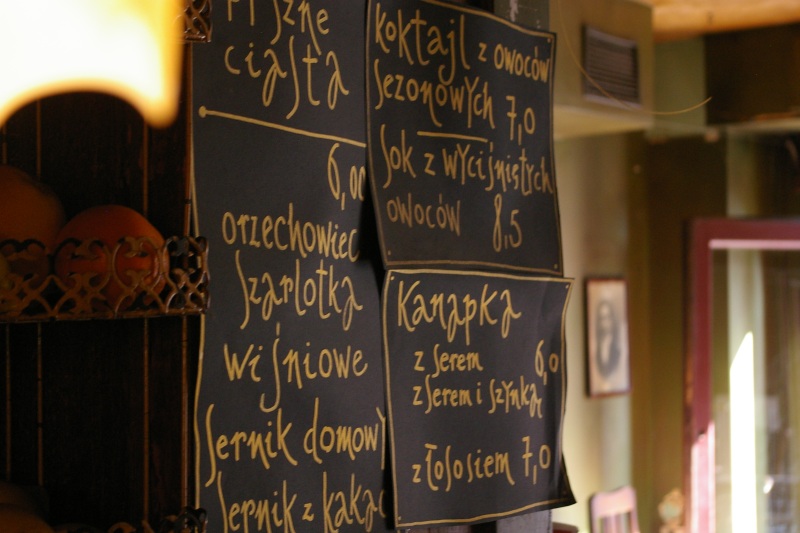 ciasta
6,00
orzechowiec
szarlotka
wiśniowe
sernik domowy
sernik z
koktajl z owoców
sezonowych 7,0
sok z wyciśniętych
owoców 8,5
Kanapka
z serem 6,0
z serem i szynką
z łososiem 7,0